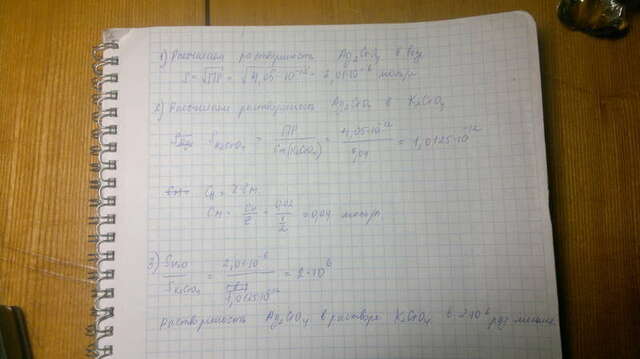 1) Рассчитаем растворимость Ag₂CrO₄ в H₂O
S = √ПР = √4,05·10⁻¹² = 2,01·10⁻⁶ моль/л
2) Рассчитаем растворимость Ag₂CrO₄ в K₂CrO₄
S K₂CrO₄ = ПР / Cм(K₂CrO₄) = 4,05·10⁻¹² / 0,04 = 1,0125·10⁻¹²
Cн = z·Cм
Cм = Cн / z = 0,02 / ½ = 0,04 моль/л
3) S H₂O / S K₂CrO₄ = 2,01·10⁻⁶ / 1,0125·10⁻¹² = 2·10⁶
Растворимость Ag₂CrO₄ в растворе K₂CrO₄ в 2·10⁶ раз меньше